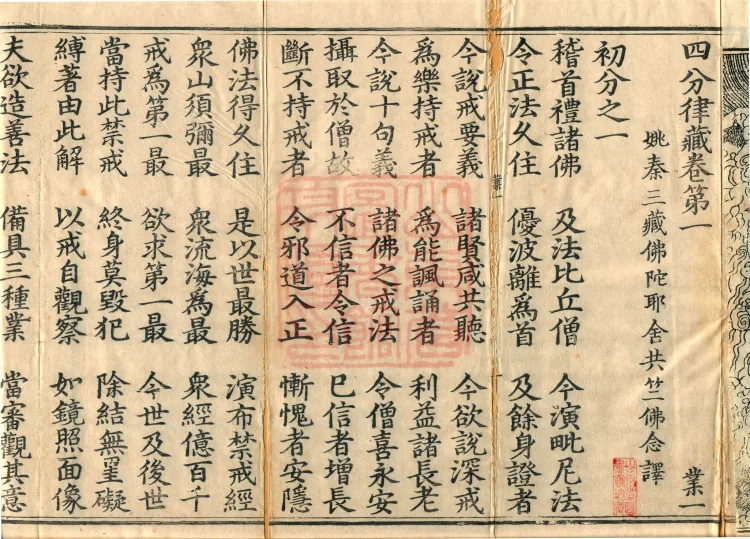 四分律藏卷第一 業一
姚秦三藏佛陀耶舍共竺佛念譯
初分之一
稽首禮諸佛 及法比丘僧 今演毗尼法
令正法久住 優波離為首 及餘身證者
業一
今說戒要義 諸賢咸共聽 今欲說深戒
為樂持戒者 為能諷誦者 利益諸長老
今說十句義 諸佛之戒法 令僧喜永安
攝取於僧故 不信者令信 已信者增長
斷不持戒者 令邪道入正 慚愧者安隱
佛法得久住 是以世最勝 演布禁戒經
眾山須彌最 眾流海為最 眾經億百千
戒為第一最 欲求第一最 今世及後世
當持此禁戒 終身莫毀犯 除結無罣礙
縛著由此解 以戒自觀察 如鏡照面像
夫欲造善法 備具三種業 當審觀其意